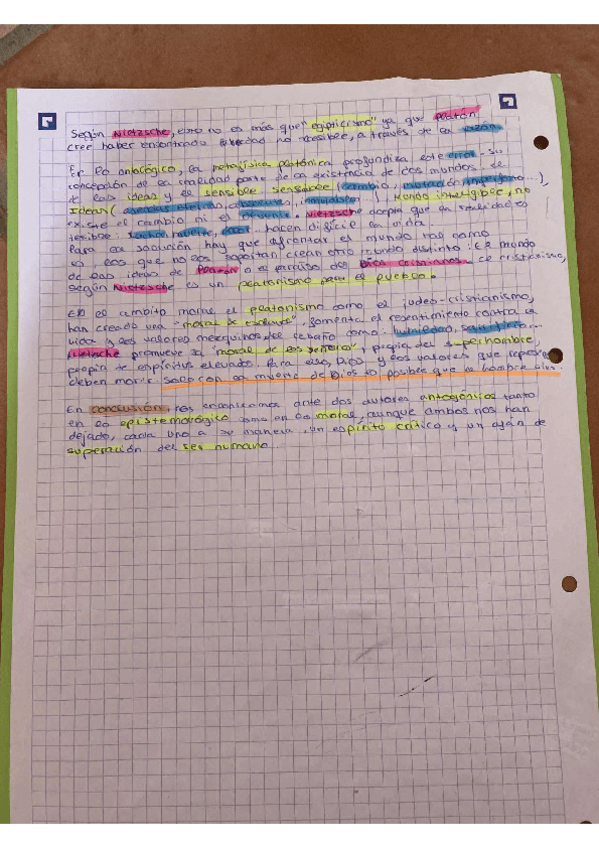 Según Nietzsche, esto no es más que "egipticismo" ya que Platón
cree haber encontrado verdad no sensible, a través de la razón.
En lo ontológico, la metafísica platónica profundiza este error. Su
concepción de la realidad parte de la existencia de dos mundos el
de las ideas y el sensible. Sensible (cambio, mutación, imperfono...),
Ideas( , absolutas, inmutables). Mundo inteligible, no
existe el cambio ni el devenir. Nietzsche acepta que en realidad es
terrible: lucha, muerte, dolor hacen difícil la vida
Para la solución hay que afrontar el mundo tal como
es, los que no lo soportan crean otro mundo distinto: el mundo
de las ideas de Platón o el paraíso de los cristianos. El cristianismo,
según Nietzsche es un platonismo para el pueblo.
En el ámbito moral el platonismo como el judeo-cristianismo,
han creado una "moral de esclavos", fomenta el resentimiento contra la
vida y los valores mezquinos del rebaño como: humildad, sacrificio...
Nietzsche promueve la "moral de los señores", propia del superhombre,
propia de espíritus elevados. Para ello, Dios y los valores que representa
deben morir. Solo con la muerte de Dios es posible que el hombre viva.
En conclusión, nos encontramos ante dos autores antagónicos tanto
en lo epistemológico como en lo moral, aunque ambos nos han
dejado, cada uno a su manera, un espíritu crítico y un afán de
superación del ser humano.